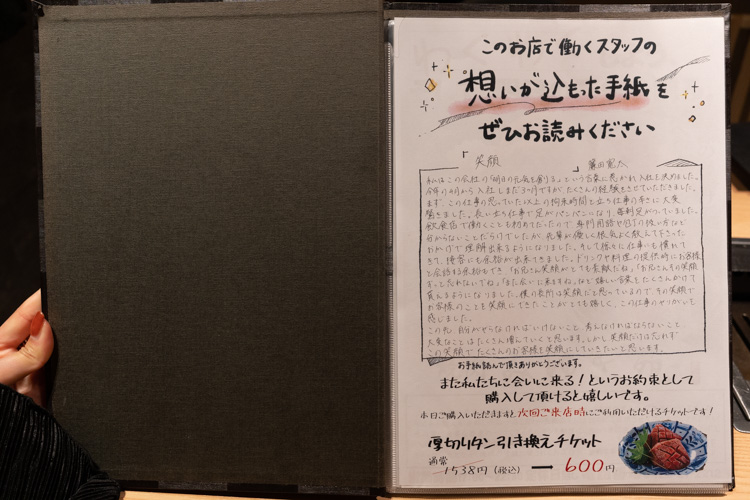 このお店で働くスタッフの
想いが込もった手紙を
ぜひお読みください
「笑顔」 寛太
私はこの会社の「明日の元気を創る」という言葉に惹かれ入社を決めました。
今年の4月から入社しまだ3ヶ月ですが、たくさんの経験をさせていただきました。
まず、この仕事の思っていた以上の拘束時間と立ち仕事の辛さに大変
驚きました。長い立ち仕事で足がパンパンになり、毎朝足がつっていました。
飲食店で働くことも初めてだったので専門用語や包丁の扱い方など
分からないことだらけでしたが、先輩が優しく根気よく教えて下さった
おかげで理解出来るようになりました。そして徐々に仕事にも慣れて
きて、接客にも余裕が出来てきました。ドリンクや料理の提供時にお客様
と会話する余裕もでき「お兄さん笑顔がとても素敵だね」「お兄さんその笑顔
ずっと忘れないでね」「また会いに来ますね」など嬉しい言葉をたくさんかけて
貰えるようになりました。僕の長所は笑顔だと思っているので、その笑顔で
お客様のことを笑顔にできたことがとても嬉しく、この仕事のやりがいを
感じました。
この先、自分がやらなければいけないこと、考えなければならないこと、
大変なことはたくさん増えていくと思います。しかし笑顔だけは忘れず
この笑顔でたくさんのお客様を笑顔にしていきたいと思います。
お手紙読んで頂きありがとうございます。
また私たちに会いに来る!というお約束として
購入して頂けると嬉しいです。
本日ご購入いただきますと次回ご来店時にご利用いただけるチケットです!
厚切りタン引き換えチケット
通常
1538円(税込) → 600円